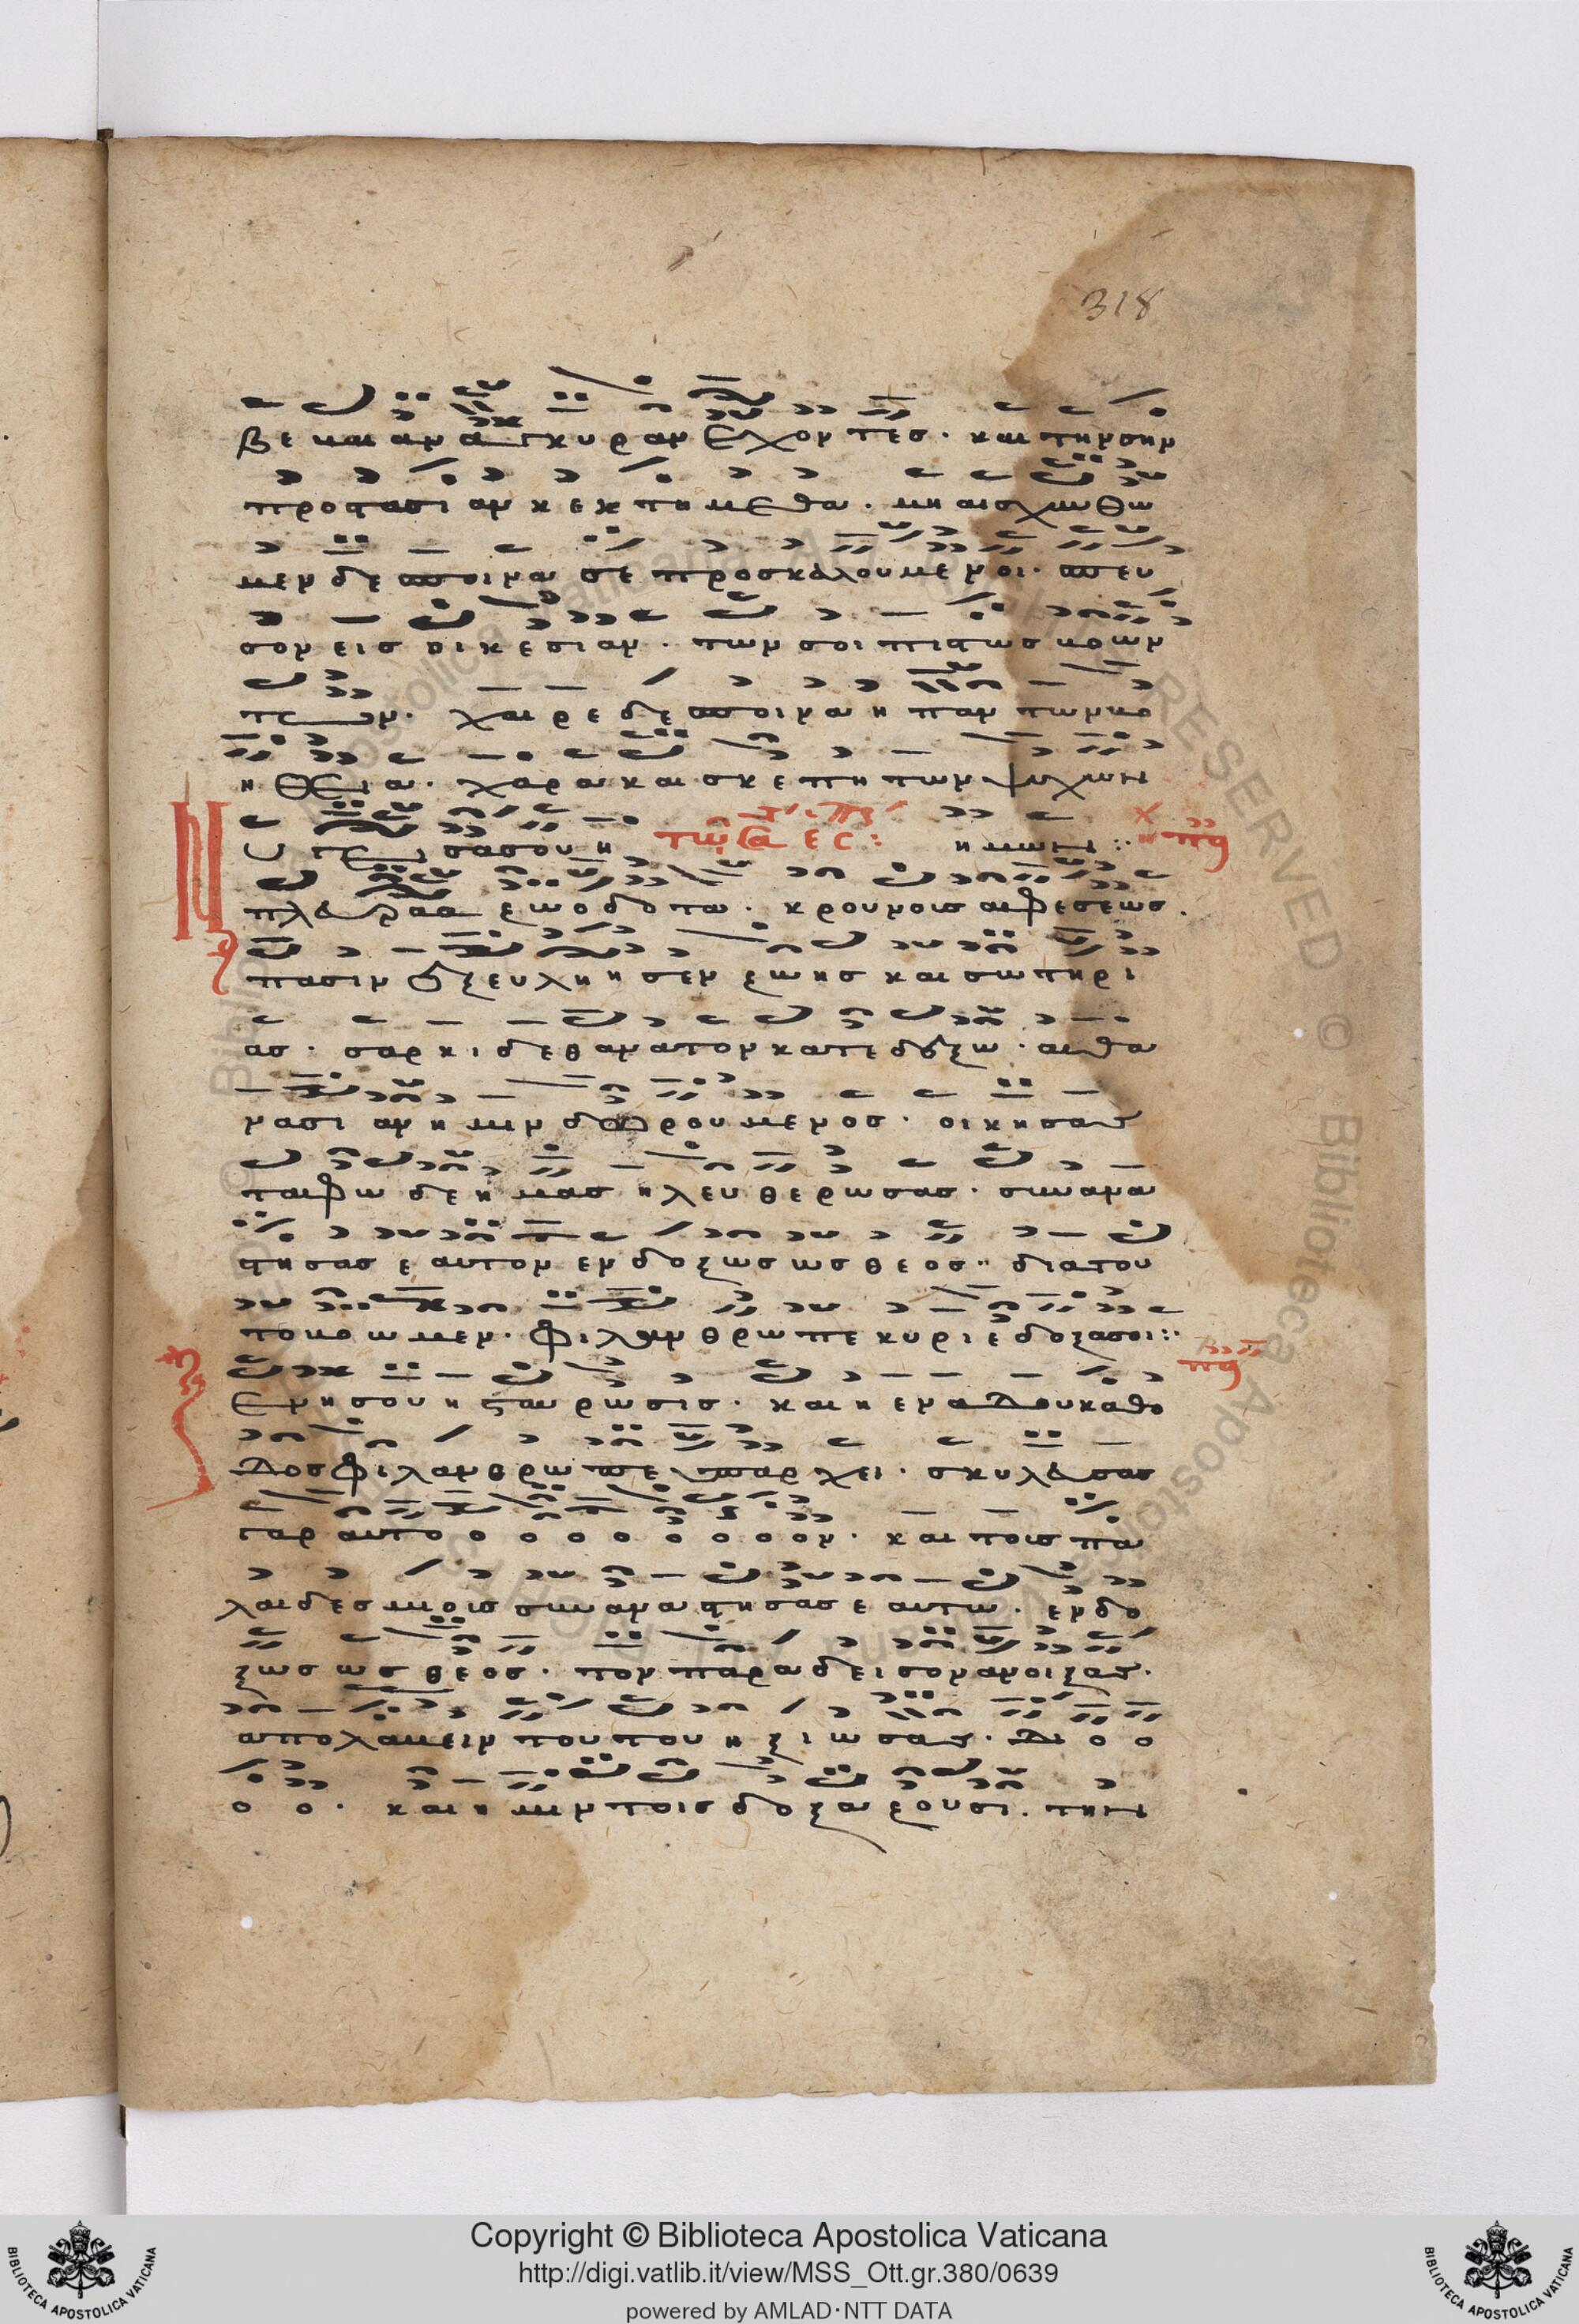 318
βε και αν α γκυραν εχοντες · και την σην
προστασι αν κεκτημεθα · μη αισχυνθω
μεν δεσποινα σε προσκαλουμενοι · σπευ
σον εις ικεσιαν · των σοι πιστως βοων
των · χαιρε δεσποινα η παντων βο
η θεια · χαρα και σκεπη των ψυχων
ημων :·
πλευραα εζωοδοτω · κρουνοις αφεσεως ·
πασιν εξεβλυ η σεν ζωης και σωτηρι
ας · σαρκι δε θανατον κατεδεξω · αθα
νασι αν η μιν δωρουμενος · οικησας
ταφω δε η μας ηλευθερωσας · συνανα
στησας εαυτον ενδοξως ως θεος · δια του
το βοωμεν · φιλανθρωπε κυριε δοξα σοι :·
Εν η σου η σταυρωσις · και η εν αδου καθο
δος φιλανθρωπε υπαρχει · σκυλευσας
γαρ αυτο ο ο ο ο ο ο ο ον · και τους πα
λαι δεσμιους συνανα στησας εαυτω · ενδο
ξως ως θεος · τον παραδεισον ανοιξας ·
απολαβειν τουτου ηξιωσας · Δι ο ο
ο ο · και η μιν τοις δοξαζουσι · την
Copyright © Biblioteca Apostolica Vaticana
http://digi.vatlib.it/view/MSS_Ott.gr.380/0639
powered by AMLAD·NTT DATA
BIBLIOTECA APOSTOLICA VATICANA
BIBLIOTECA APOSTOLICA VATICANA